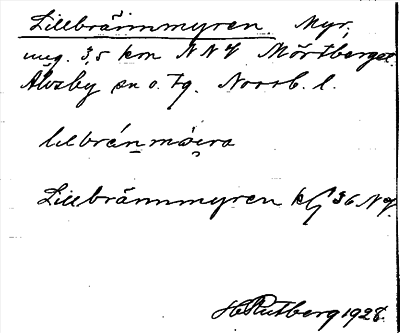 Lillbrännmyren. Myr,
ung. 3,5 km NNV Mörtberget.
Älvsby sn o. tg. Norrb. l.
lilbränmöira
Lillbrännmyren kG 36 NV.
H Rutberg 1928.